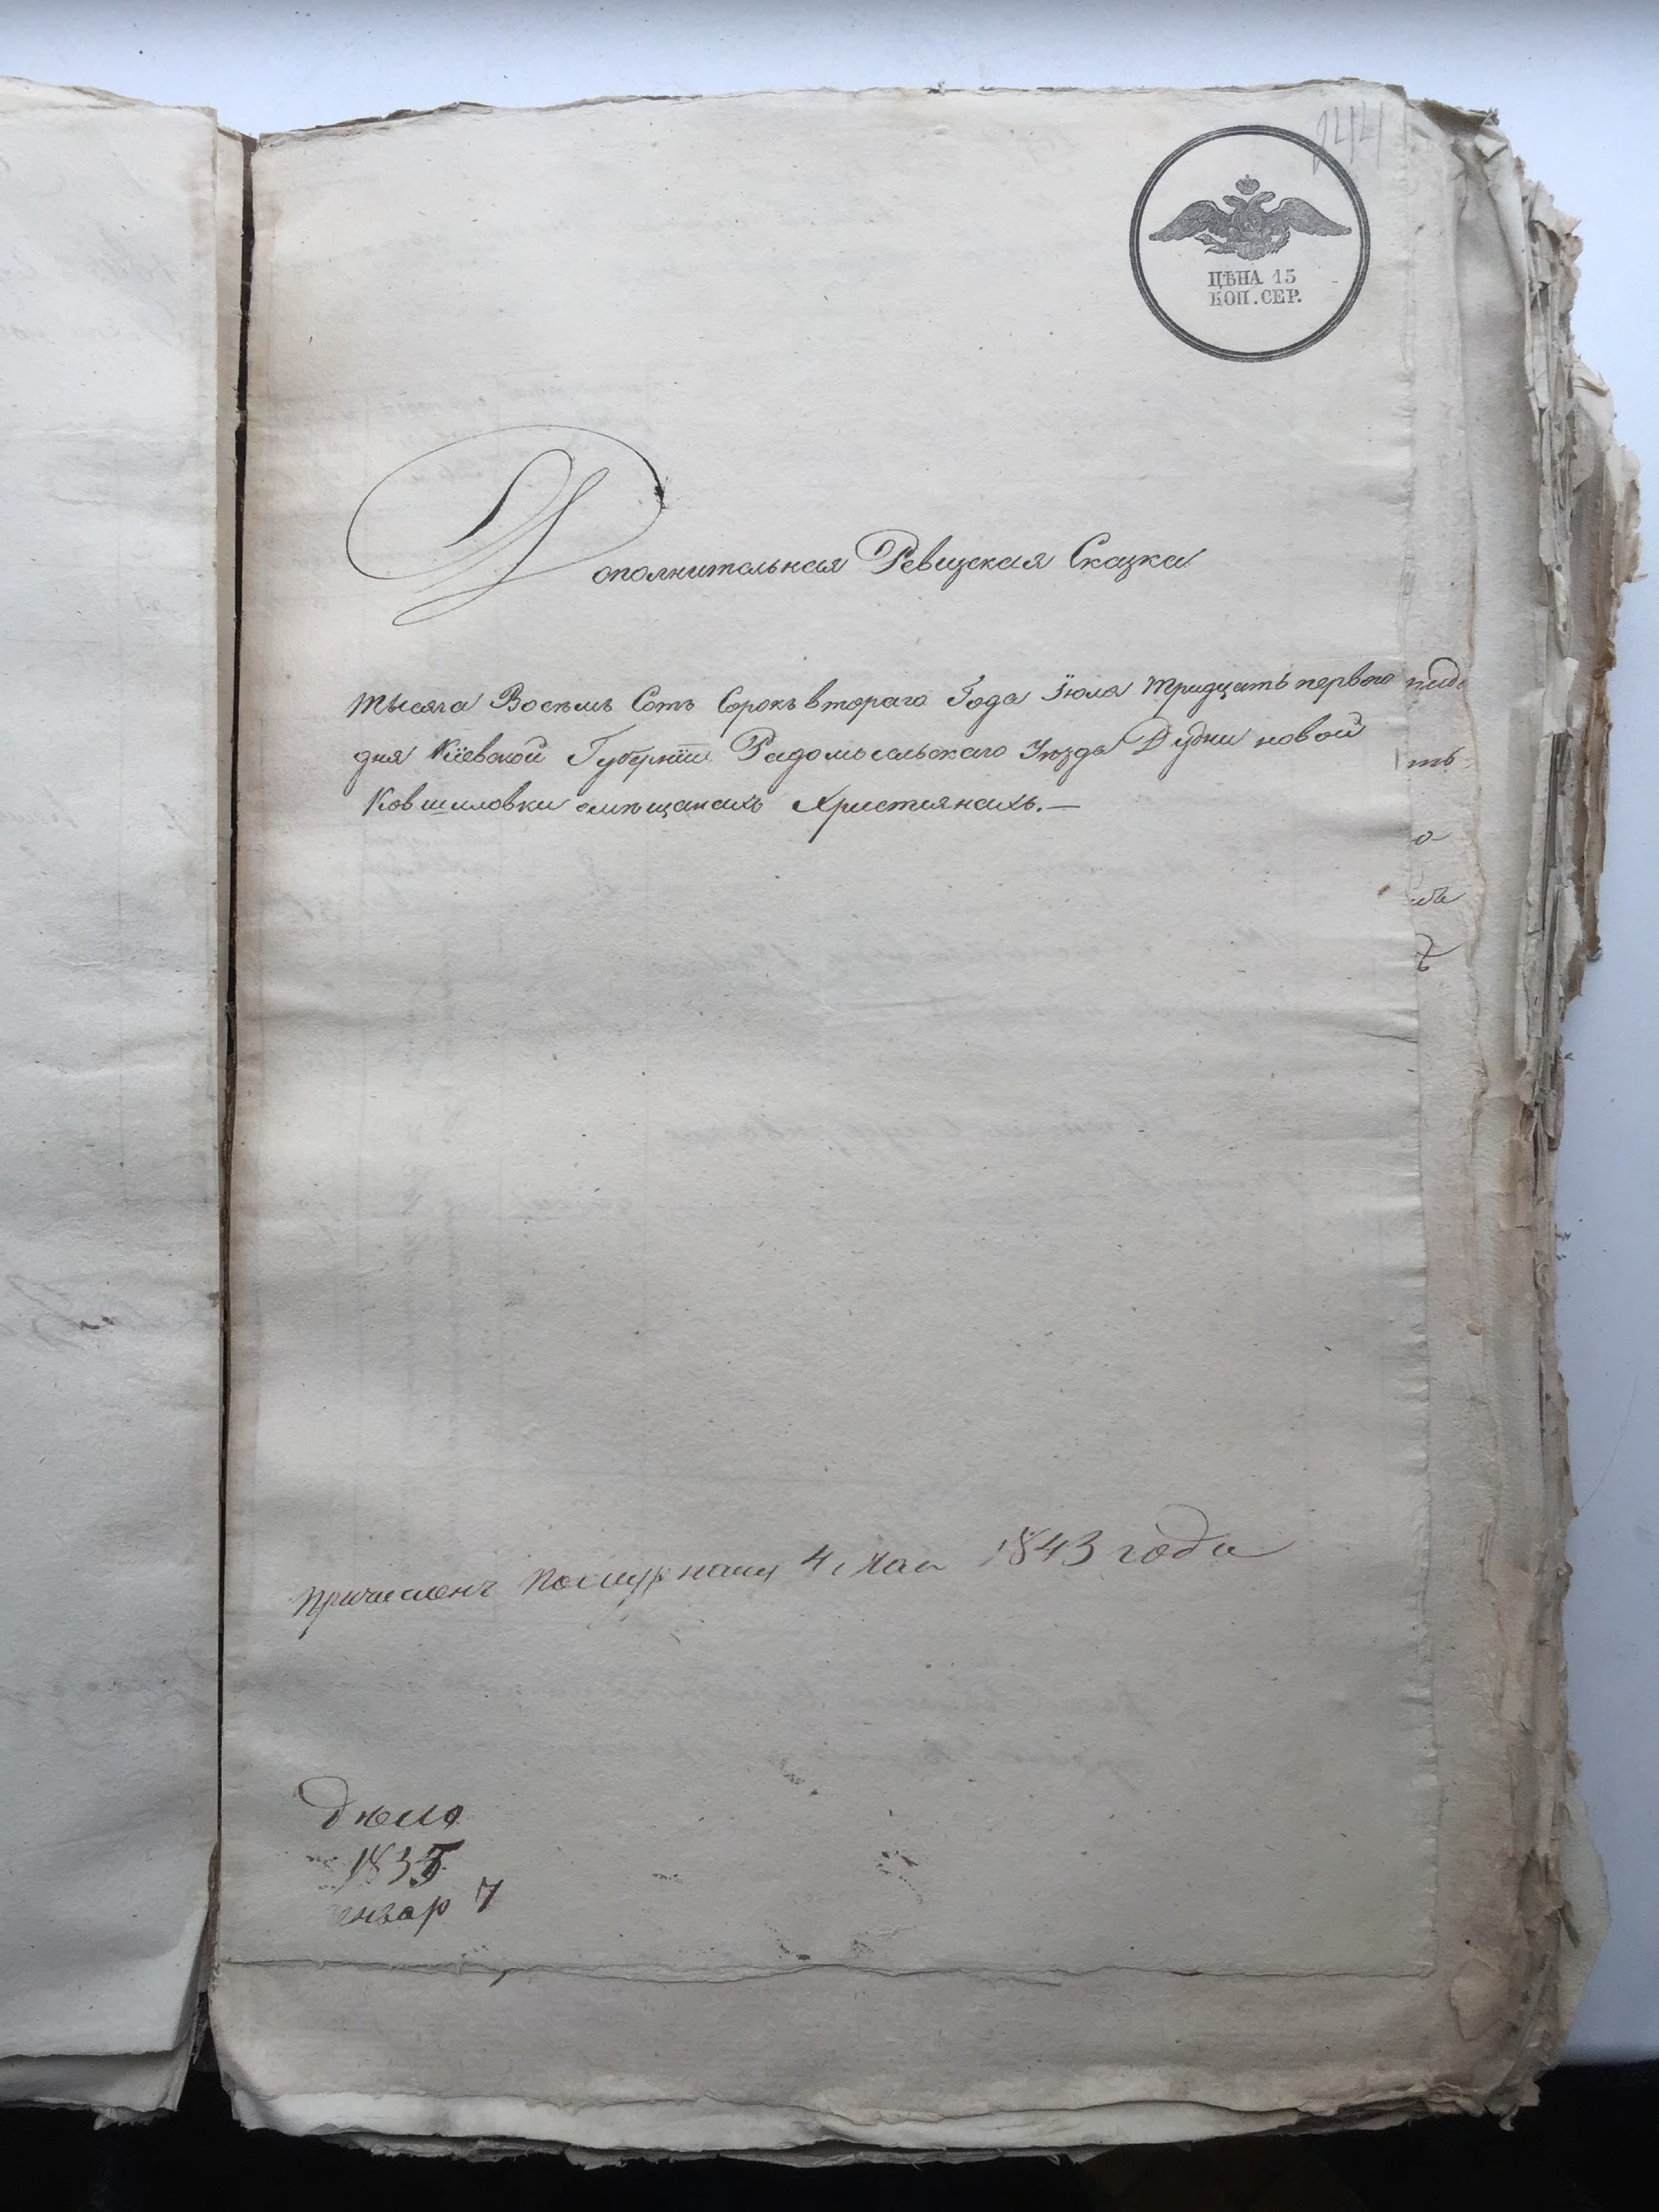 ЦѢНА 15
КОП. СЕР.
Дополнительная Ревизская Сказка
тысяча Восемь Сотъ Сорокъ втораго Года Iюля тридцать перваго
дня Кiевской Губернiи Радомысльскаго Уѣзда Дудни новой
Ковшиловки омѣщанахъ Христiянахъ.—
Причисленъ 4 Мая 1843 года
Дѣло
1835
енвар 7